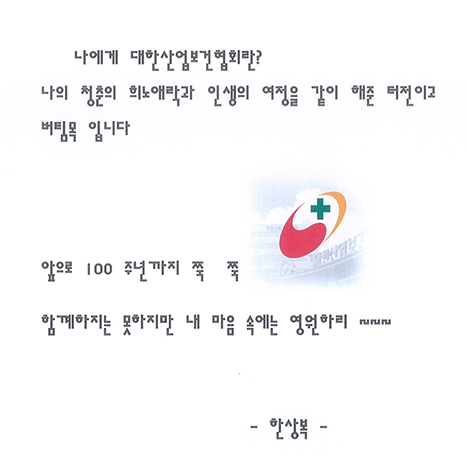 나에게 대한산업보건협회란?
나의 청춘의 희노애락과 인생의 여정을 같이 해준 터전이고
버팀목 입니다
앞으로 100 주년까지 쭉 쭉
함께하지는 못하지만 내 마음 속에는 영원하리 ~~~
- 한상복 -